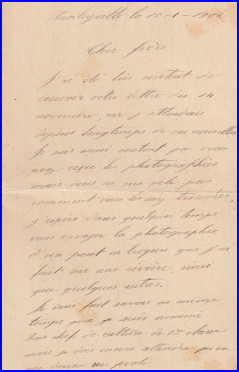 le 10-1-1902
Cher frère
J'ai été très content de
recevoir votre lettre du 14
novembre, car j'attendais
depuis longtemps de vos nouvelles
Je vais aussi surtout que vous
avez reçu les photographies
mais vous ne me parlez pas
comment vous les avez trouvées,
j'espère dans quelques temps
vous envoyer la photographie
d'un pont en briques que j'ai
fait sur une rivière, ainsi
que quelques autres.
Je vous fait savoir en même
temps que je suis nommé
chef de culture de 1re classe
mais je dois encore attendre
poste